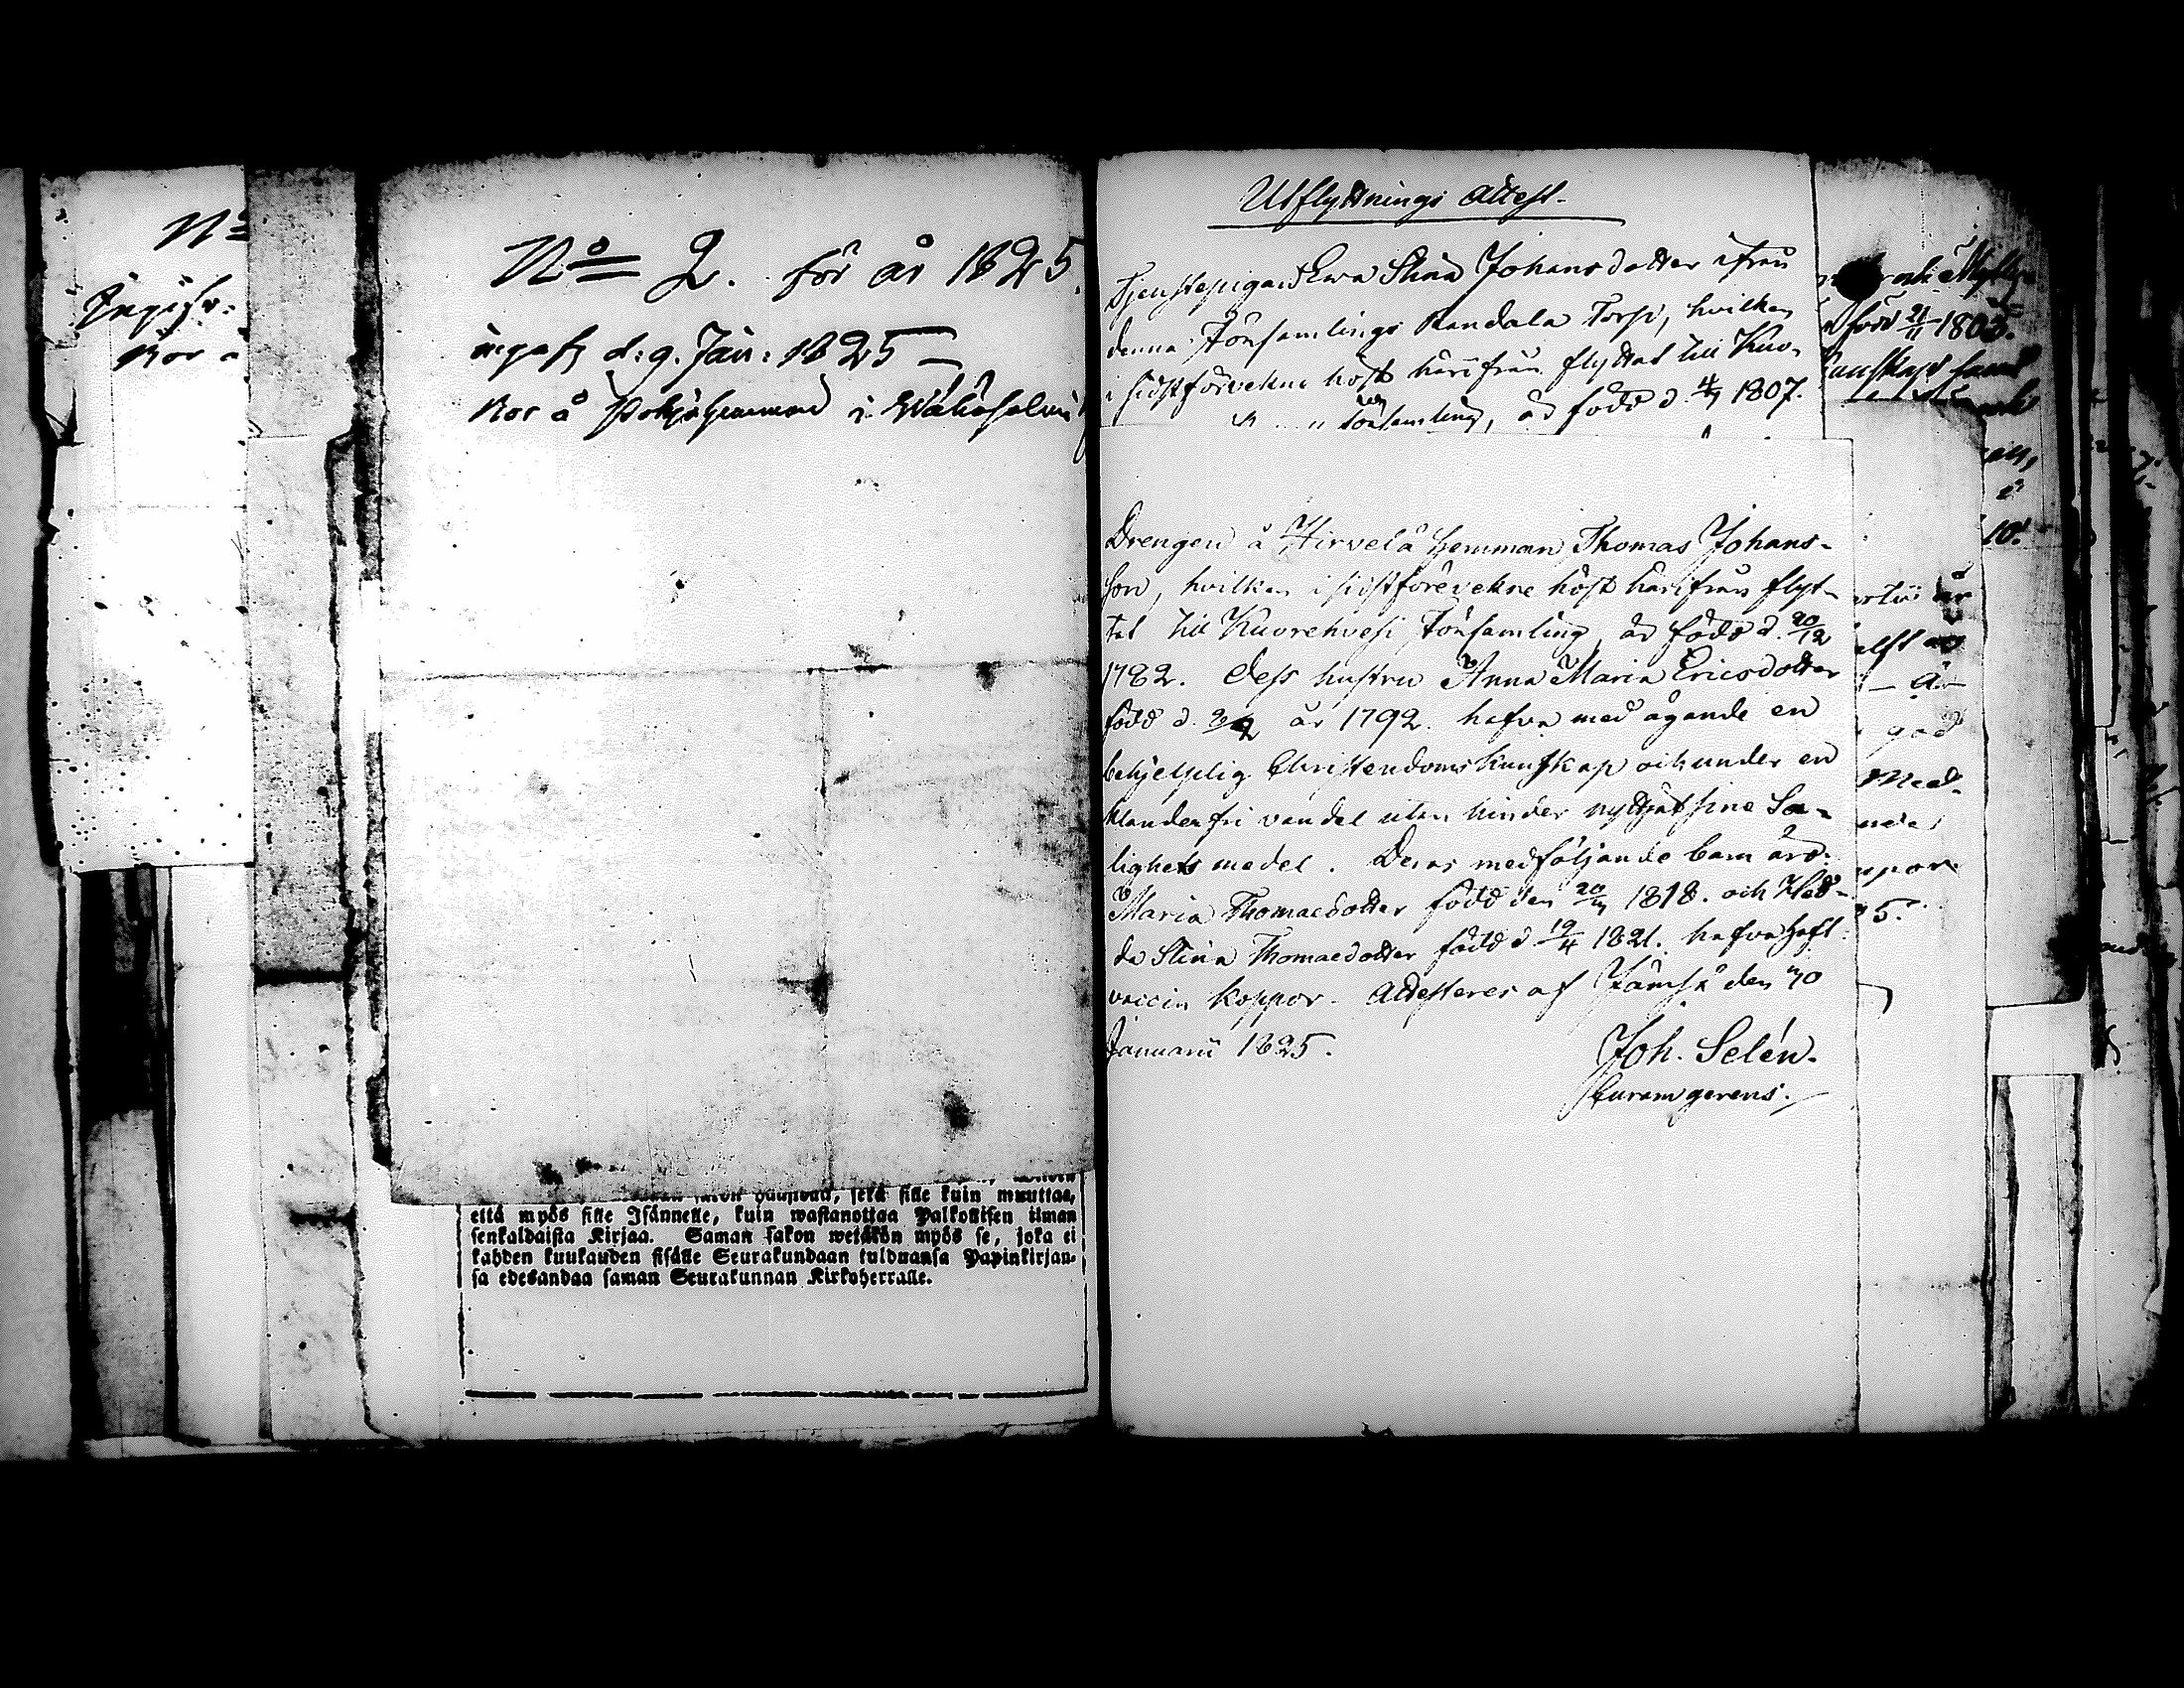 No
Ingifv:
Bor å
No 2. för år 1825.
ingafs d: 9. Jan: 1825
Bor å Pohja hemman i Wähäsalmi
sekä sille kuin muuttaa,
että myös sille Isännelle, kuin wastanottaa Palkollisen ilman
senkaldaista Kirjaa. Saman sakon wetäkön myös se, joka ei
kahden kuukauden sisälle Seurakundaan tulduansa Papinkirjan-
sa edesandaa saman Seurakunnan Kirkoherralle.
Utflyttnings Attest.
Tjenstepigan Ewa Stina Johansdotter ifrån
denna Församlings Kandala Torp, hvilken
i sidstförvekne höst härifrån flyttat till Kuo-
Församling, är född d. 4/7 1807.
Drengen å Hirvelä Hemman Thomas Johans-
son, hvilken i sidstförevekne höst härifrån flyt-
tat till Kuorehvesi Församling, är född d. 20/12
1782. Dess hustru Anna Maria Ericsdotter
född d. år 1792. hafva med ägande en
behjelplig Christendoms kunskap och under en
klanderfri vandel utan hinder nyttjat sine Sa-
lighets medel. Deras medföljande barn äro:
Maria Thomædotter född den 1818. och Hed-
da Stina Thomædotter född d 19/4 1821. hafva haft
vaccin koppor. Attesteres af Jämsä den 10
Januarii 1825.
Joh. Selén.
Curam gerens.
född 21/11 1803.
Kunskap samt
10.
god
Med-
5.